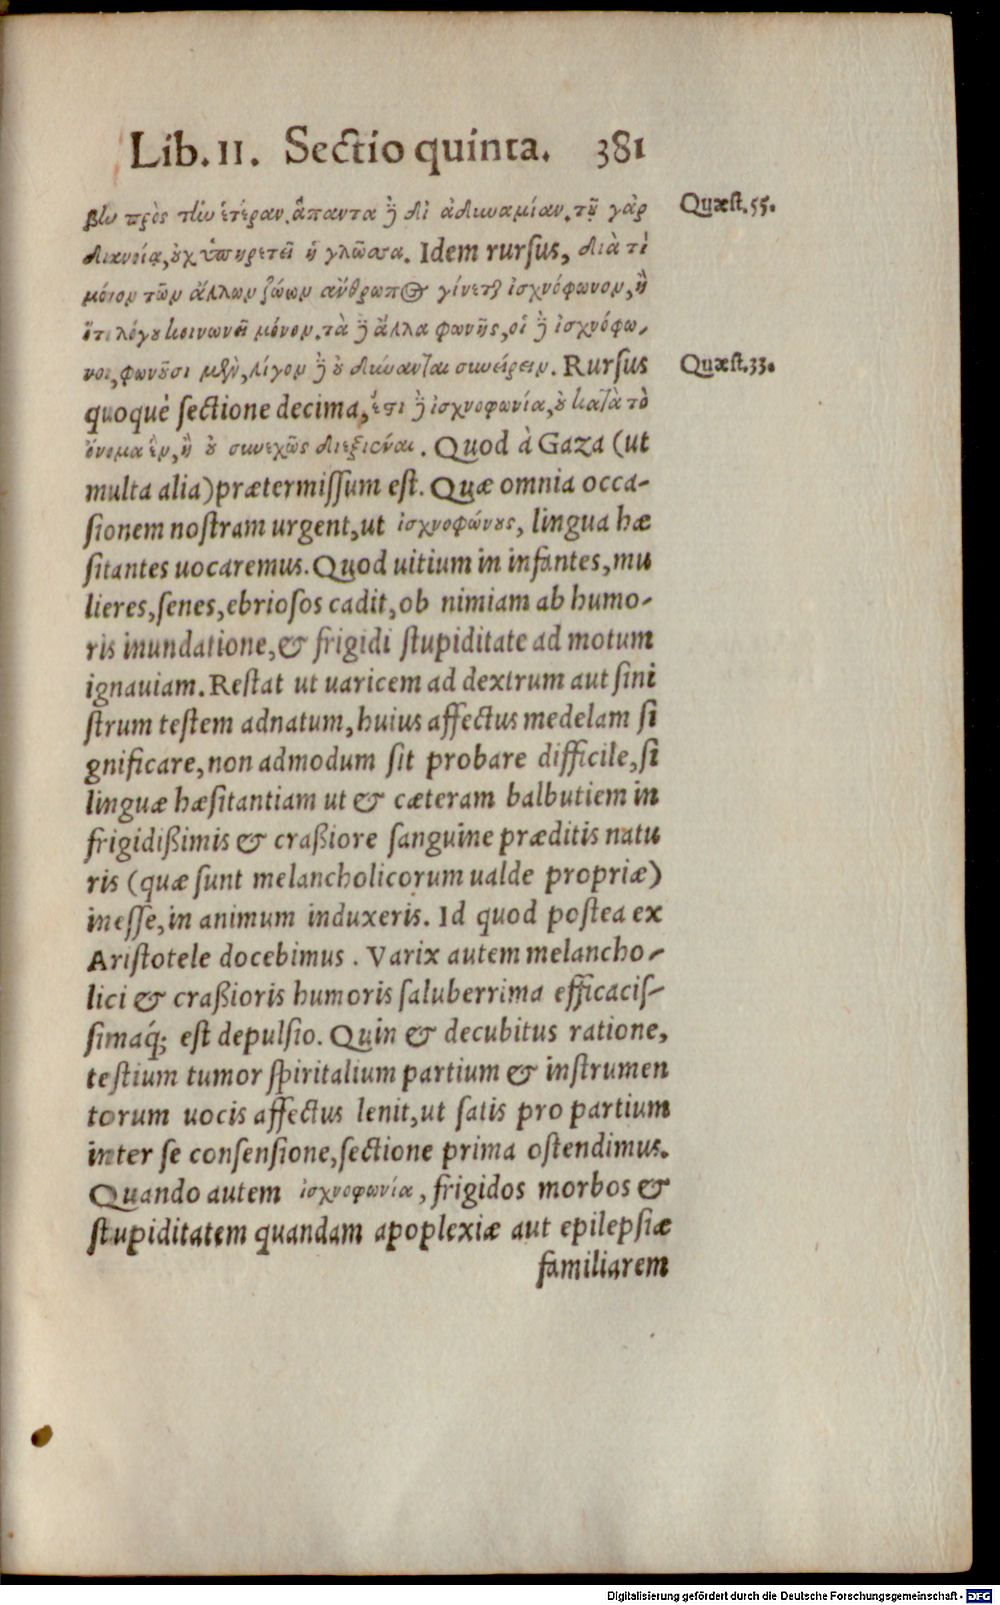 Lib. II. Sectio quinta. 381
βλυ πρὸς τὴν ἑτέραν. ἅπαντα ἢ δι' ἀδυναμίαν. τῇ γὰρ
Quæst. 55.
διανοίᾳ, οὐχ ὑπηρετεῖ ἡ γλῶσσα. Idem rursus, διὰ τί
μόνον τῶν ἄλλων ζώων ἄνθρωπος γίνεται ἰσχνόφωνον, ἢ
ὅτι λόγου κοινωνεῖ μόνον. τὰ δὲ ἄλλα φωνῆς, οἱ δὲ ἰσχνόφω-
νοι, φωνοῦσι μὲν, λόγον δὲ οὐ δύνανται συνείρειν. Rursus
Quæst. 33.
quoque ſectione decima, ἔστι δὲ ἰσχνοφωνία, οὐ κατὰ τὸ
ὄνομα ἓν, ἢ οὐ συνεχῶς διεξιέναι. Quod à Gaza (ut
multa alia) prætermiſſum eſt. Quæ omnia occa-
ſionem noſtram urgent, ut ἰσχνοφώνους, lingua hæ
ſitantes uocaremus. Quod uitium in infantes, mu
lieres, ſenes, ebrioſos cadit, ob nimiam ab humo-
ris inundatione, & frigidi ſtupiditate ad motum
ignauiam. Reſtat ut uaricem ad dextrum aut ſini
ſtrum teſtem adnatum, huius affectus medelam ſi
gnificare, non admodum ſit probare difficile, ſi
linguæ hæſitantiam ut & cæteram balbutiem in
frigidißimis & craßiore ſanguine præditis natu
ris (quæ ſunt melancholicorum ualde propriæ)
ineſſe, in animum induxeris. Id quod poſtea ex
Ariſtotele docebimus. Varix autem melancho-
lici & craßioris humoris ſaluberrima efficaciſ-
ſimaq́; eſt depulſio. Quin & decubitus ratione,
teſtium tumor ſpiritalium partium & inſtrumen
torum uocis affectus lenit, ut ſatis pro partium
inter ſe conſenſione, ſectione prima oſtendimus.
Quando autem ἰσχνοφωνία, frigidos morbos &
ſtupiditatem quandam apoplexiæ aut epilepſiæ
familiarem
Digitalisierung gefördert durch die Deutsche Forschungsgemeinschaft - DFG